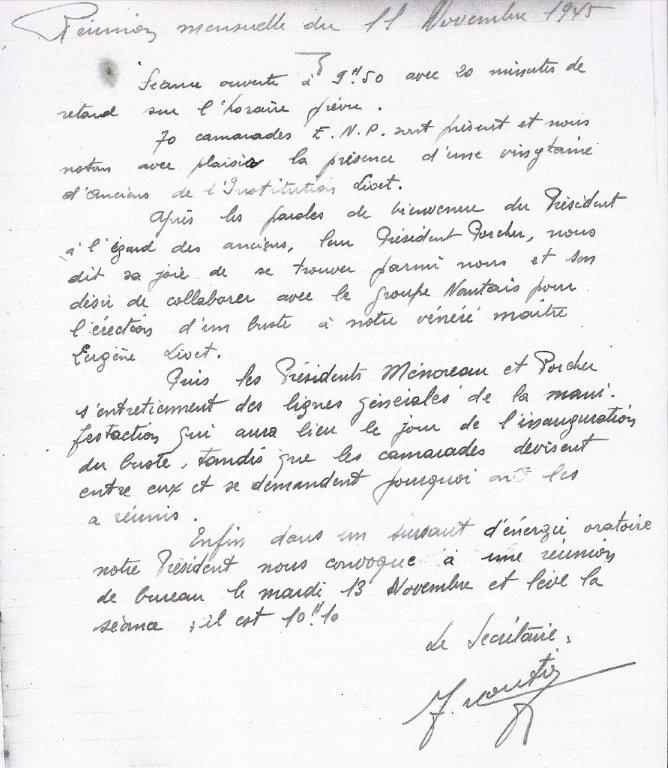 Réunion mensuelle du 11 Novembre 1945
Séance ouverte à 9H50 avec 20 minutes de
retard sur l'horaire prévu.
70 camarades E.N.P. sont présent et nous
notons avec plaisir la présence d'une vingtaine
d'anciens de l'Institution Livet.
Après les paroles de bienvenue du Président
à l'égard des anciens, leur Président Porcher, nous
dit sa joie de se trouver parmi nous et son
désir de collaborer avec le groupe Nantais pour
l'érection d'un buste à notre vénéré maître
Eugène Livet.
Puis les Présidents Ménoreau et Porcher
s'entretiennent des lignes générales de la mani-
festaction qui aura lieu le jour de l'inauguration
du buste, tandis que les camarades devisent
entre eux et se demandent pourquoi on les
a réunis.
Enfin dans un sursaut d'énergie oratoire
notre Président nous convoque à une réunion
de bureau le mardi 13 Novembre et lève la
séance ; il est 10H10
Le Secrétaire,